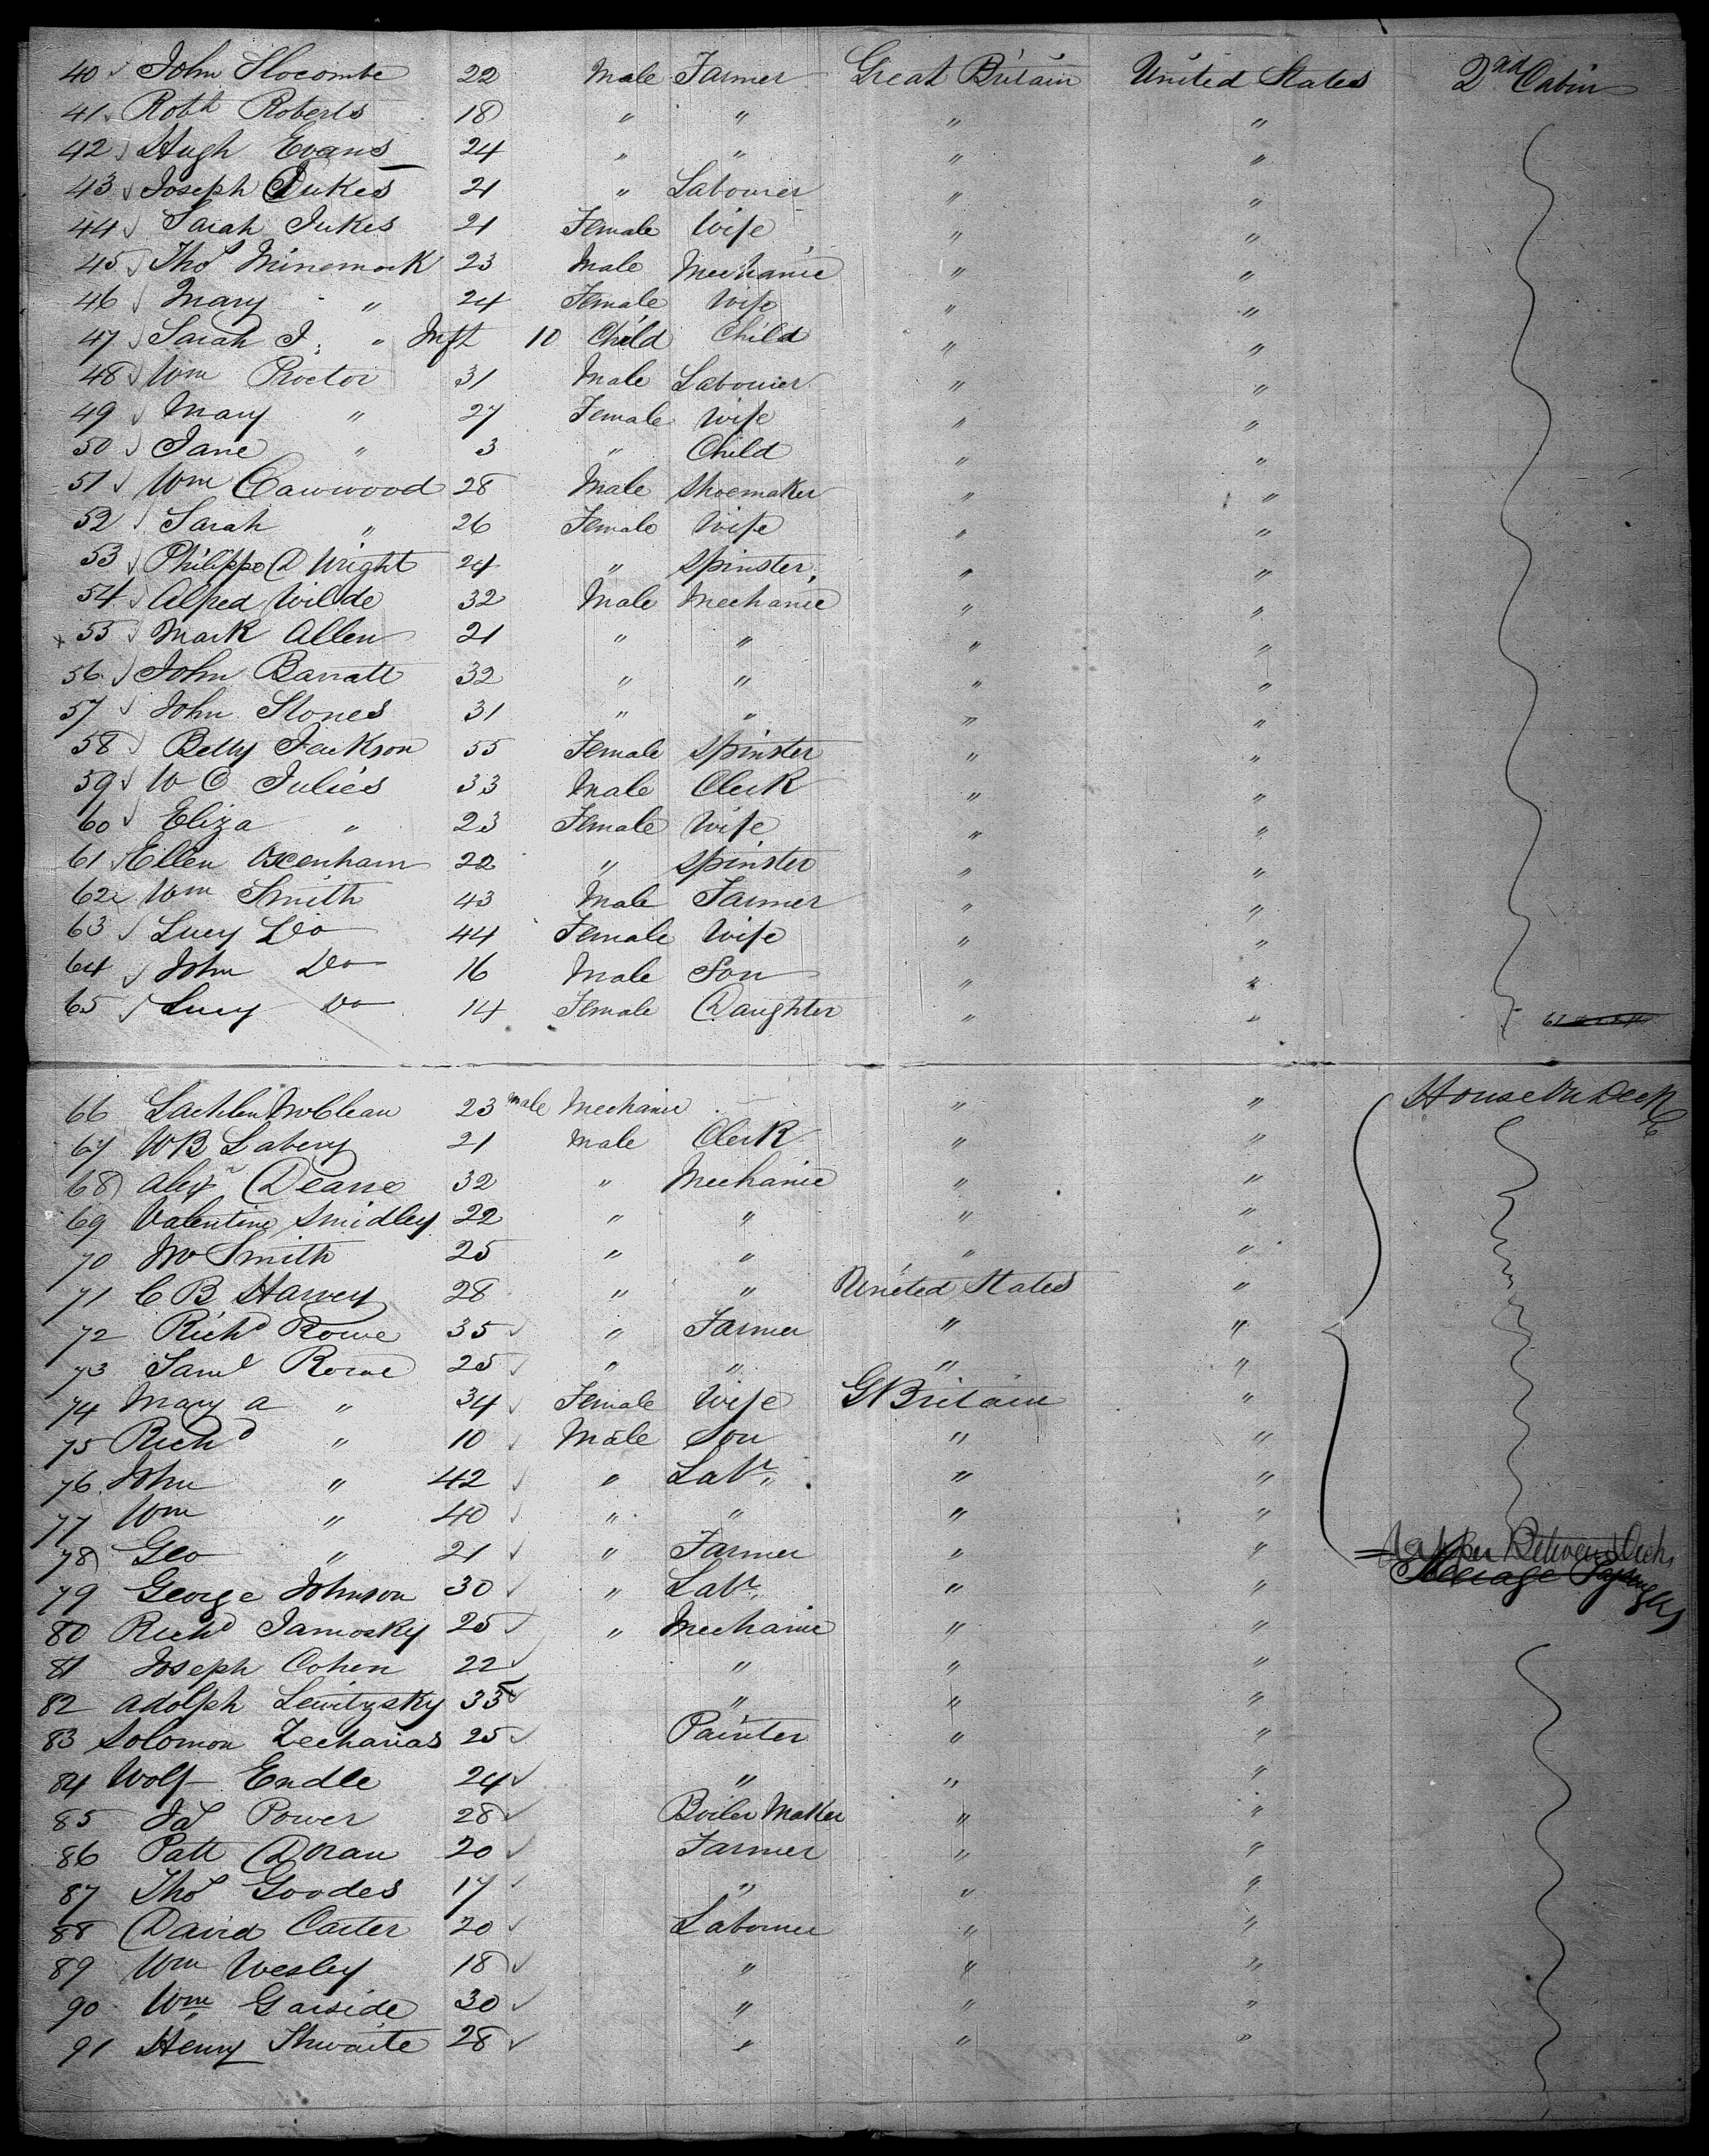 40 John Slocombe 22 Male Farmer Great Britain United States 2nd Cabin
41 Robt Roberts 18 " " " "
42 Hugh Evans 24 " " " "
43 Joseph Jukes 21 " Labourer " "
44 Sarah Jukes 21 Female Wife " "
45 Thos Minemack 23 Male Mechanic " "
46 Mary " 24 Female Wife " "
47 Sarah J. " Inft 10 Child Child " "
48 Wm Proctor 31 Male Labourer " "
49 Mary " 27 Female Wife " "
50 Jane " 3 " Child " "
51 Wm Cawwood 28 Male Shoemaker " "
52 Sarah " 26 Female Wife " "
53 Philippe D Wright 24 " Spinster " "
54 Alfred Wilde 32 Male Mechanic " "
x 55 Mark Allen 21 " " " "
56 John Barratt 32 " " " "
57 John Stones 31 " " " "
58 Betty Jackson 55 Female Spinster " "
59 W C Julies 33 Male Clerk " "
60 Eliza " 23 Female Wife " "
61 Ellen Oxenham 22 " Spinster " "
62 Wm Smith 43 Male Farmer " "
63 Lucy Do 44 Female Wife " "
64 John Do 16 Male Son " "
65 Lucy Do 14 Female Daughter " "
66 Lachlen McClean 23 Male Mechanic " " House on Deck
67 W B Labery 21 Male Clerk " "
68 Alexr Deane 32 " Mechanic " "
69 Valentine Smidley 22 " " " "
70 Smith 25 " " " "
71 C B Harvey 28 " " United States "
72 Richd Rowe 35 " Farmer " "
73 Saml Rowe 25 " " " "
74 Mary a " 34 Female Wife G Britain "
75 Richd " 10 Male Son " "
76 John " 42 " Labr " "
77 Wm " 40 " " " "
78 Geo " 21 " Farmer " " Upper Between Decks
79 George Johnson 30 " Labr " " Steerage
80 Richd Jamosky 25 " Mechanic " "
81 Joseph Cohen 22 " " "
82 Adolph Lewitzsky 35 " " "
83 Solomon Zecharias 25 Painter " "
84 Wolf Endle 24 " " "
85 Jas Power 28 Boiler Maker " "
86 Patt Doran 20 Farmer " "
87 Thos Goodes 17 " " "
88 David Carter 20 Labourer " "
89 Wm Wesley 18 " " "
90 Wm Garside 30 " " "
91 Henry Thwaite 28 " " "